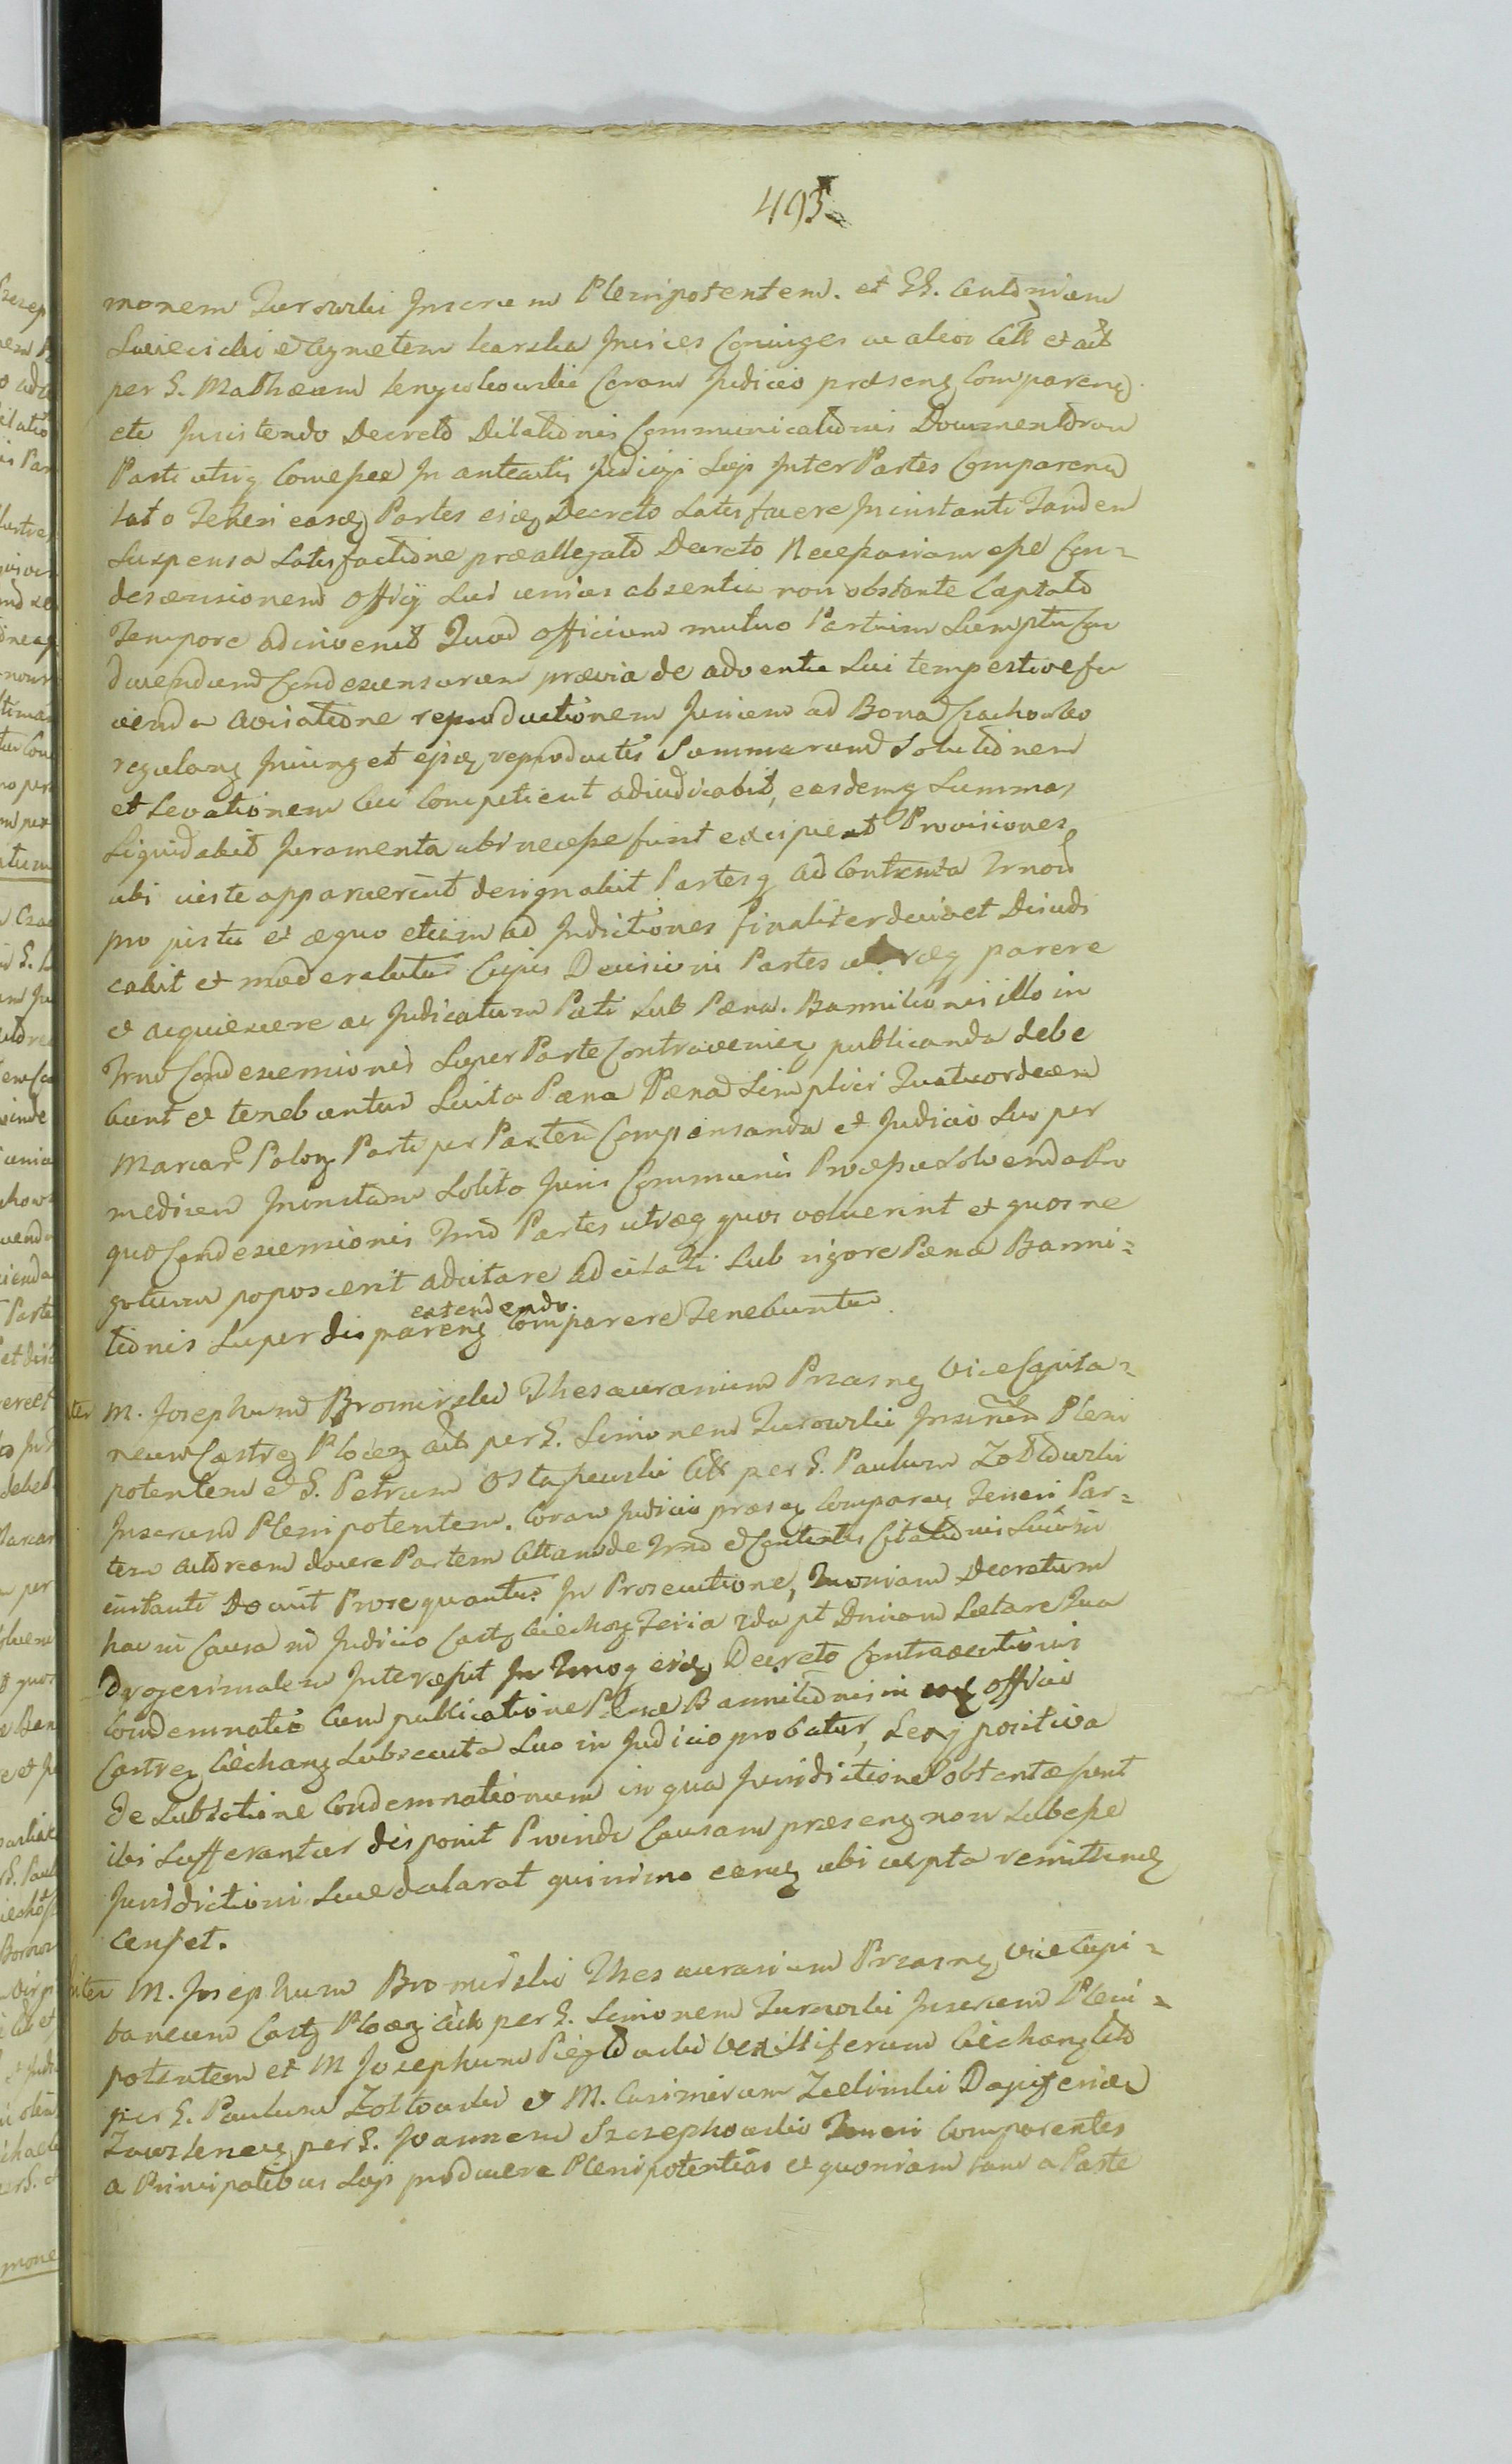 495
monem Turowski Juratum Plenipotentem. et GG. Antonium
Swiecicki et Agnetem Karska Juris Coniuges ac alios Citt et act
per G. Mathæum Lengwkowski Coram Judicio præsenq Comparenq
etc Insistendo Decreto Dilationis Communicationis Documentorum
Parti utriq Concessæ In anteactis Judicijs Suis Inter Partes Comparenq
lato Teneri easdq Partes eidq Decreto Satisfacere In instanti Tandem
Suspensa Satisfactione præallegato Decreto Necessariam esse Con=
descensionem Officij Sui unius absentia non obstante Captato
Tempore adinvenit Quod Officium mutuo Partium Sumptu Con
ducendum Condescensurum prævia de adventu Sui tempestive fa
cienda Avisatione reproductionem Jurium ad Bona Czachowko
regulanq Injunget ejsq reproductis Summarum Solutionem
et Levationem Cui Competierit adiudicabit, easdemq Summas
Liquidabit Juramenta ubi necesse fuerit excipiet Provisiones
ubi iuste apparuerint designabit Partesq ad Contenta Trnou
pro justu et æquo etiam ad Inductiones finaliter decidet Diiudi
cabit et moderabitur Cujus Decisioni Partes utræq parere
et acquiescere ac Judicatum Pati Sub Pæna. Bannitionis illo in
Trno Condescensionis Super Parte Contravenienq publicanda debe
bunt et tenebuntur Luita Pæna Pæna Simplici Quatuordecem
Marcar Polonq Parti per Partem Compensanda et Judicio Suo per
mediem Inonitam Solito Juris Communis Processu Solvenda Pro
quo Condescensionis Trno Partes utræq quos voluerint et quos ne
gotium poposcerit adcitare adcitati Sub rigore Pænæ Banni=
tionis Super disparenq extendendo. Comparere Tenebuntur
Iter M. Josephum Bromirski Thesaurarium Prasnq ViceCapita=
neum Castrq Plocenq act per G. Simonem Turowski Juratum Pleni
potentem et G. Petrum Ostaszewski Citt per G. Paulum Zołtowski
Juratum Plenipotentem. Coram Judicio præsenq Comparenq Teneri Par=
tem actoream docere Partem Cittam de Trno et Contentis Citationis Suæ in
instanti Docuit Prosequantur In Prosecutione, Quoniam Decretum
hac in Causa in Judicio Castrq Ciechanq Feria 2da pt Dnicam Lætare Qua
dragesimalem Intercessit In Trnoq eidq Decreto Contraventionis
Condemnatio Cum publicatione Pænæ Bannitionis in Officio
Castrq Ciechanq Subsecuta Suo in Judicio probatur, Lexq positiva
de Sublatione Condemnationum in qua Jurisdictione obtentæ sunt
ibi Sufferantur disponit Proinde Causam præsenq non Subesse
Jurisdictioni Suæ declarat quinimo eamq ubi cæpta remittendq
Censet.
Iter M. Josephum Bromirski Thesaurarium Prasnq ViceCapi=
taneum Castrq Plocenq act per G. Simonem Turowski Juratum Pleni=
potentem et M Josephum Pieglowski Vexilliferum Ciechanq Citt
per G. Paulum Zołtowski et M. Casimirum Zielinski Dapiferidq
Zawskrenq per G. Joannem Szczepkowski Teneri Comparentes
a Principalibus Suis producere Plenipotentias et quoniam tam a Parte